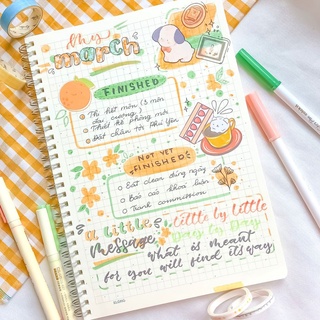 My
march
FINISHED
Thi hết môn (3 môn
đại cương)
Thiết kế phòng mới
Đặt chân tới Phú Yên
NOT YET
FINISHED
Eat clean đúng ngày
Báo cáo khoa luận
Tranh commission
a little
message
Little by Little
Day by Day
What is meant
for you will find its way